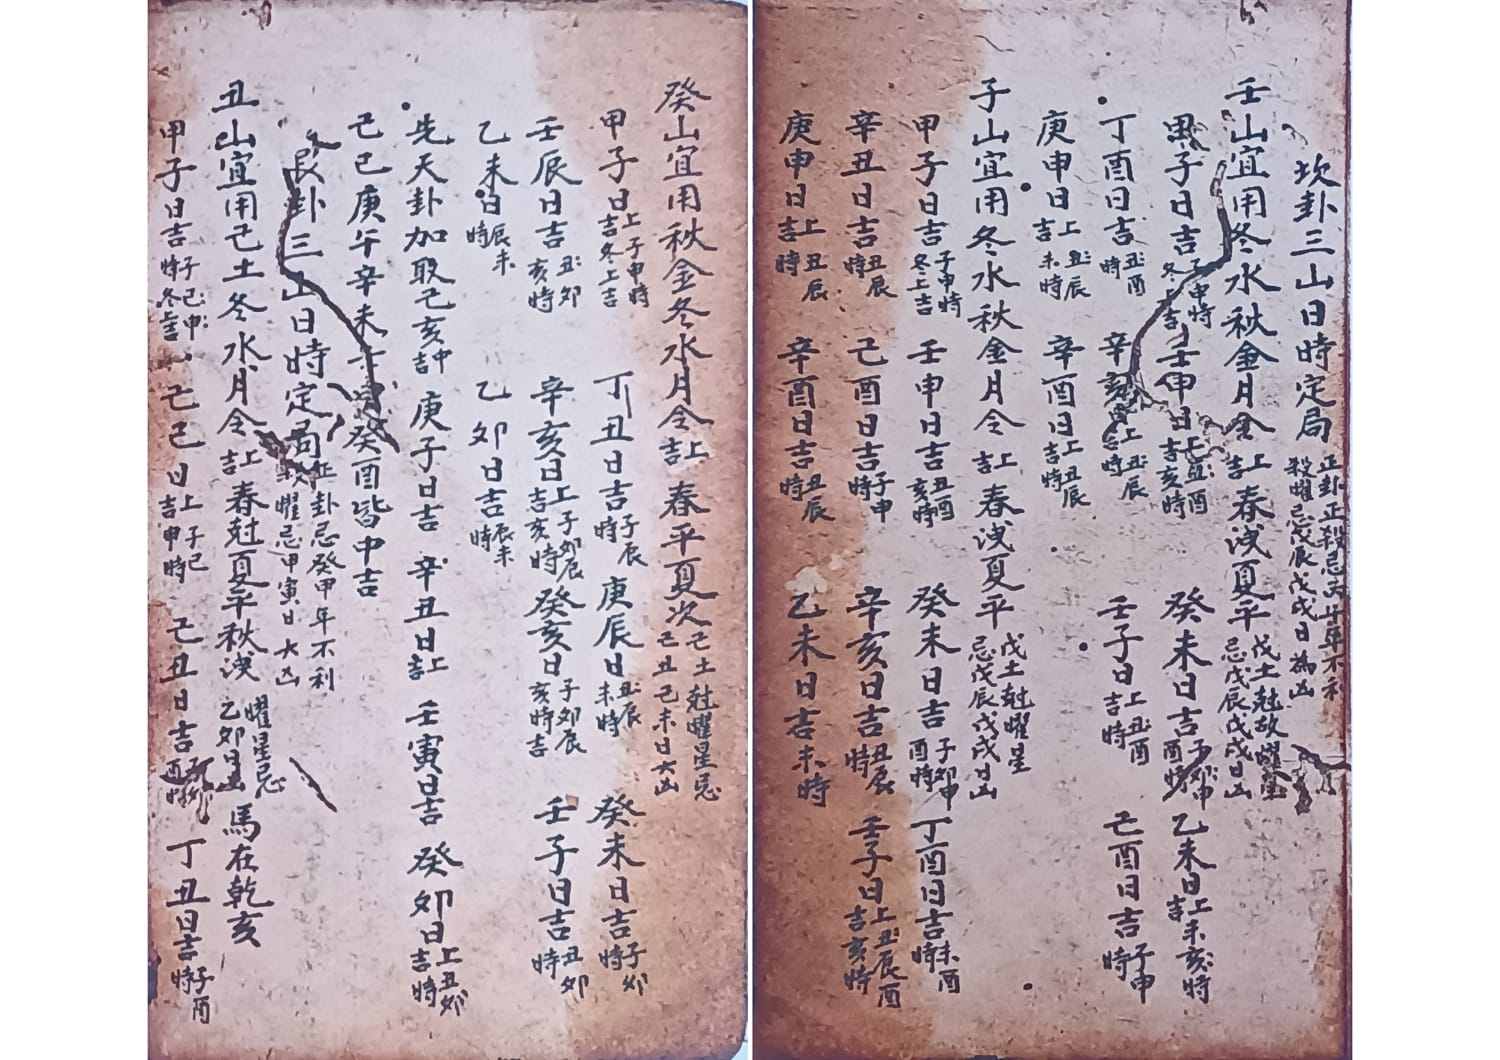 坎卦三山日時定局 正卦正殺忌 年不利 殺曜忌戊辰戊戌日為凶
壬山宜用冬水秋金月令上吉春洩夏平 戊土尅故曜 忌戊辰戊戌日凶
甲子日吉 申時冬 吉 壬申日 上吉 丑酉亥時 癸未日吉 子卯申酉時 乙未日 上吉 未亥時
丁酉日吉 丑酉時 辛亥 上 丑辰時 壬子日 上吉 丑酉時 己酉日吉 子申時
庚申日 上吉 丑辰未時 辛酉日 上吉 丑辰時
子山宜用冬水秋金月令上吉春洩夏平 戊土尅曜星 忌戊辰戊戌日凶
甲子日吉 子申時冬上吉 壬申日吉 丑酉亥時 癸未日吉 子卯申酉時 丁酉日吉 未酉時
辛丑日吉 丑辰時 己酉日吉 子申時 辛亥日吉 丑辰時 壬子日 上吉 丑辰酉亥時
庚申日 上吉 丑辰時 辛酉日吉 丑辰時 乙未日吉 未時
癸山宜用秋金冬水月令上吉春平夏次 己土尅曜星忌 己丑己未日大凶
甲子日 上吉 子申時冬上吉 丁丑日吉 子辰時 庚辰日 丑辰未時 癸未日吉 子卯時
壬辰日吉 丑卯亥時 辛亥日 上吉 子卯辰亥時 癸亥日 子卯辰亥時吉 壬子日吉 丑卯時
乙未日 辰未時 乙卯日吉 辰未時
先天卦加取己亥中吉 庚子日吉 辛丑日上吉 壬寅日吉 癸卯日 上吉 丑卯時
己巳庚午辛未 癸酉皆中吉
艮卦三山日時定局 正卦忌癸甲年不利 殺曜忌甲寅日大凶
丑山宜用己土冬水月令上吉春尅夏平秋洩 曜星忌乙卯日凶 馬在乾亥
甲子日吉 子巳申時冬 己巳日 上吉 子巳申時 己丑日吉 丁丑日吉 子酉時